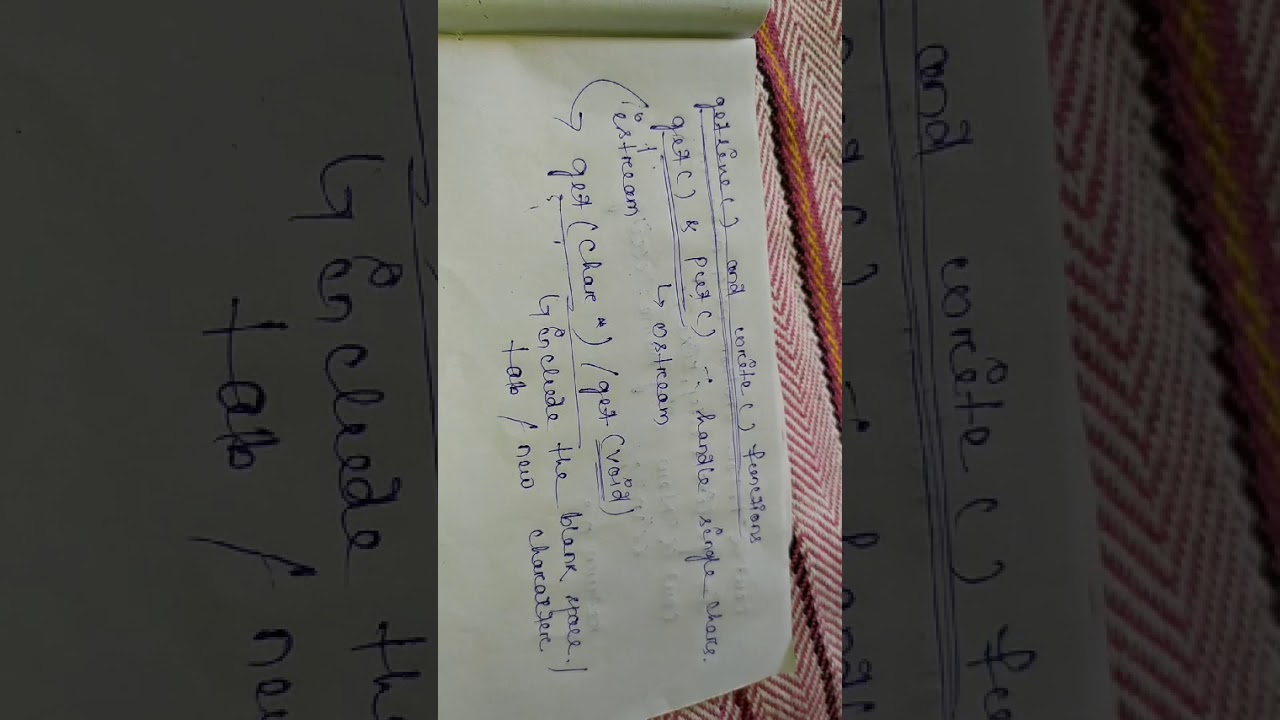 getline() and write() functions
get() & put() ∴ handle single chars.
↳ ostream
istream
→ get(char *) / get(void)
↳ include the blank space /
tab / new character